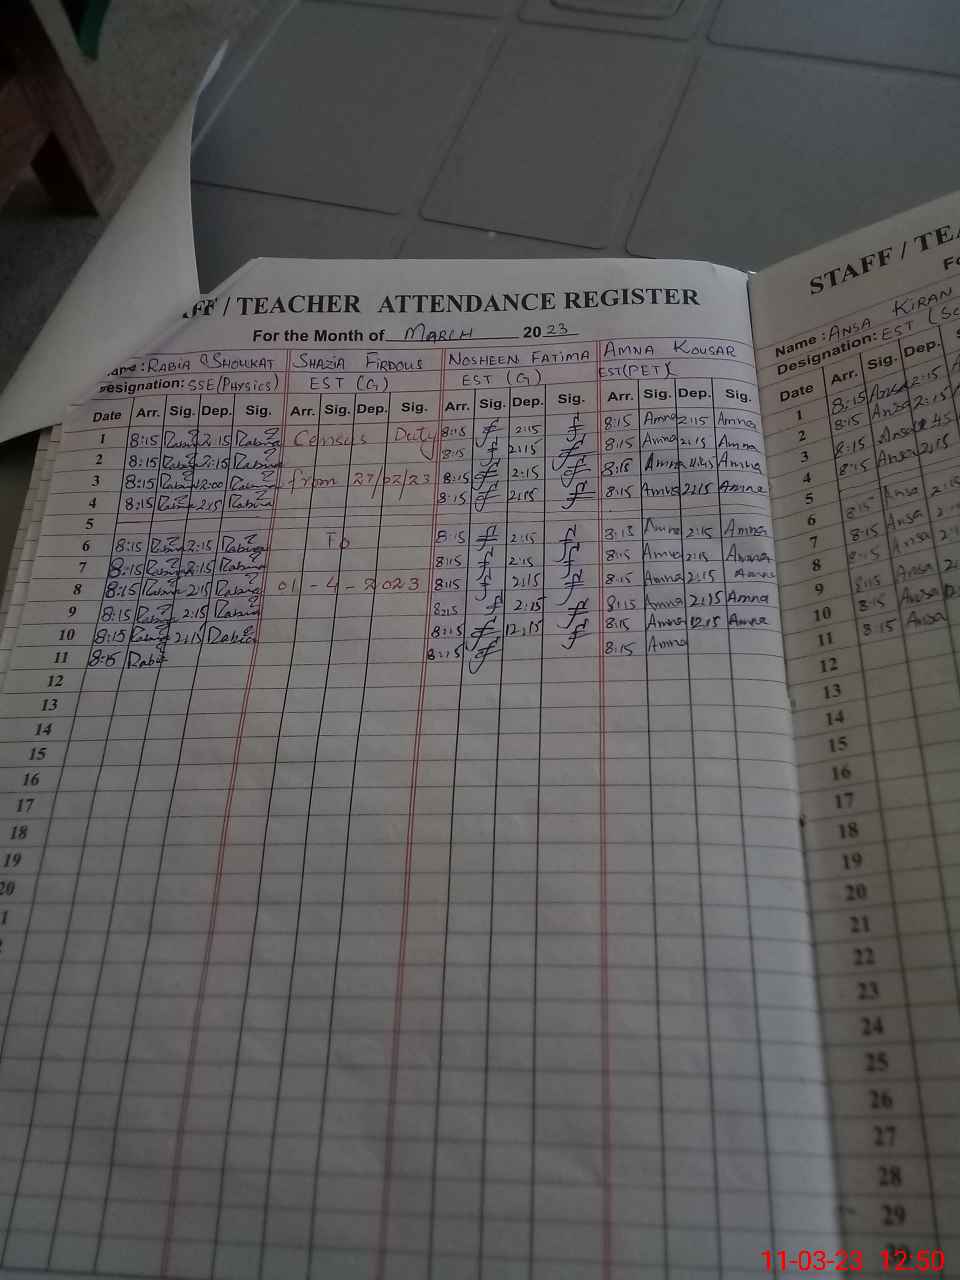 / TEACHER ATTENDANCE REGISTER
For the Month of MARCH 2023
Name: RABIA SHOUKAT SHAZIA FIRDOUS NOSHEEN FATIMA AMNA KOUSAR
Designation: SSE/(Physics) EST (G) EST (G) EST(PET)
Date Arr. Sig. Dep. Sig. Arr. Sig. Dep. Sig. Arr. Sig. Dep. Sig. Arr. Sig. Dep. Sig.
1 8:15 Rabia 2:15 Rabia Census Duty 8:15 2:15 8:15 Amna 2:15 Amna
2 8:15 Rabia 2:15 Rabia 8:15 2:15 8:15 Amna 2:15 Amna
3 8:15 Rabia 12:00 Rabia from 27/02/23 8:15 2:15 8:15 Amna Amna
4 8:15 Rabia 2:15 Rabia 8:15 2:15 8:15 Amna 2:15 Amna
5
6 8:15 Rabia 2:15 Rabia To 8:15 2:15 Amna 2:15 Amna
7 8:15 Rabia 2:15 Rabia 8:15 2:15 8:15 Amna 2:15 Amna
8 8:15 Rabia 2:15 Rabia 01-4-2023 8:15 2:15 8:15 Amna 2:15 Amna
9 8:15 Rabia 2:15 Rabia 8:15 2:15 8:15 Amna 2:15 Amna
10 8:15 Rabia 2:15 Rabia 8:15 12:15 8:15 Amna 12:15 Amna
11 8:15 Rabia 8:15 8:15 Amna
12
13
14
15
16
17
18
19
20
STAFF / TEA
Name: ANSA KIRAN
Designation: EST (Sc
Date Arr. Sig. Dep.
1 8:15 Ansa 2:15
2 8:15 Ansa 2:15
3 8:15 Ansa
4 8:15 Ansa 2:15
5
6 8:15 Ansa 2:15
7 8:15 Ansa
8 8:15 Ansa
9 8:15 Ansa
10 8:15 Ansa
11 8:15 Ansa
12
13
14
15
16
17
18
19
20
21
22
23
24
25
26
27
28
29
11-03-23 12:50